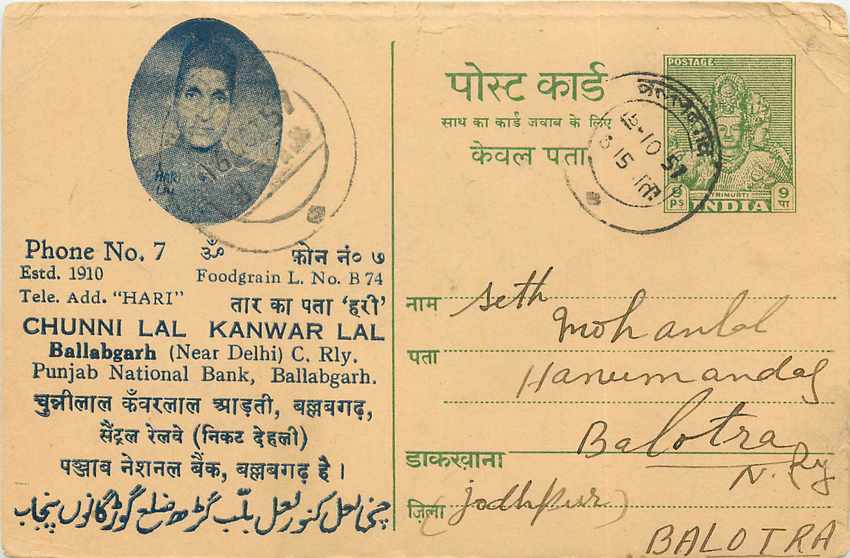 HARI
LAL
Phone No. 7 ॐ फ़ोन नं० ७
Estd. 1910 Foodgrain L. No. B 74
Tele. Add. "HARI" तार का पता 'हरी'
CHUNNI LAL KANWAR LAL
Ballabgarh (Near Delhi) C. Rly.
Punjab National Bank, Ballabgarh.
चुन्नीलाल कँवरलाल आड़ती, बल्लबगढ़,
सैंट्रल रेलवे (निकट देहली)
पञ्जाब नेशनल बैंक, बल्लबगढ़ है।
چنی لعل کنور لعل بلب گڑھ ضلع گوڑگانوں پنجاب
पोस्ट कार्ड
साथ का कार्ड जवाब के लिए
केवल पता
POSTAGE
9 PS
TRIMURTI
9 पा
INDIA
10 57
नाम Seth
Mohanlal
पता Hanumandas
डाकखाना Balotra
N. Ry
ज़िला (Jodhpur)
BALOTRA